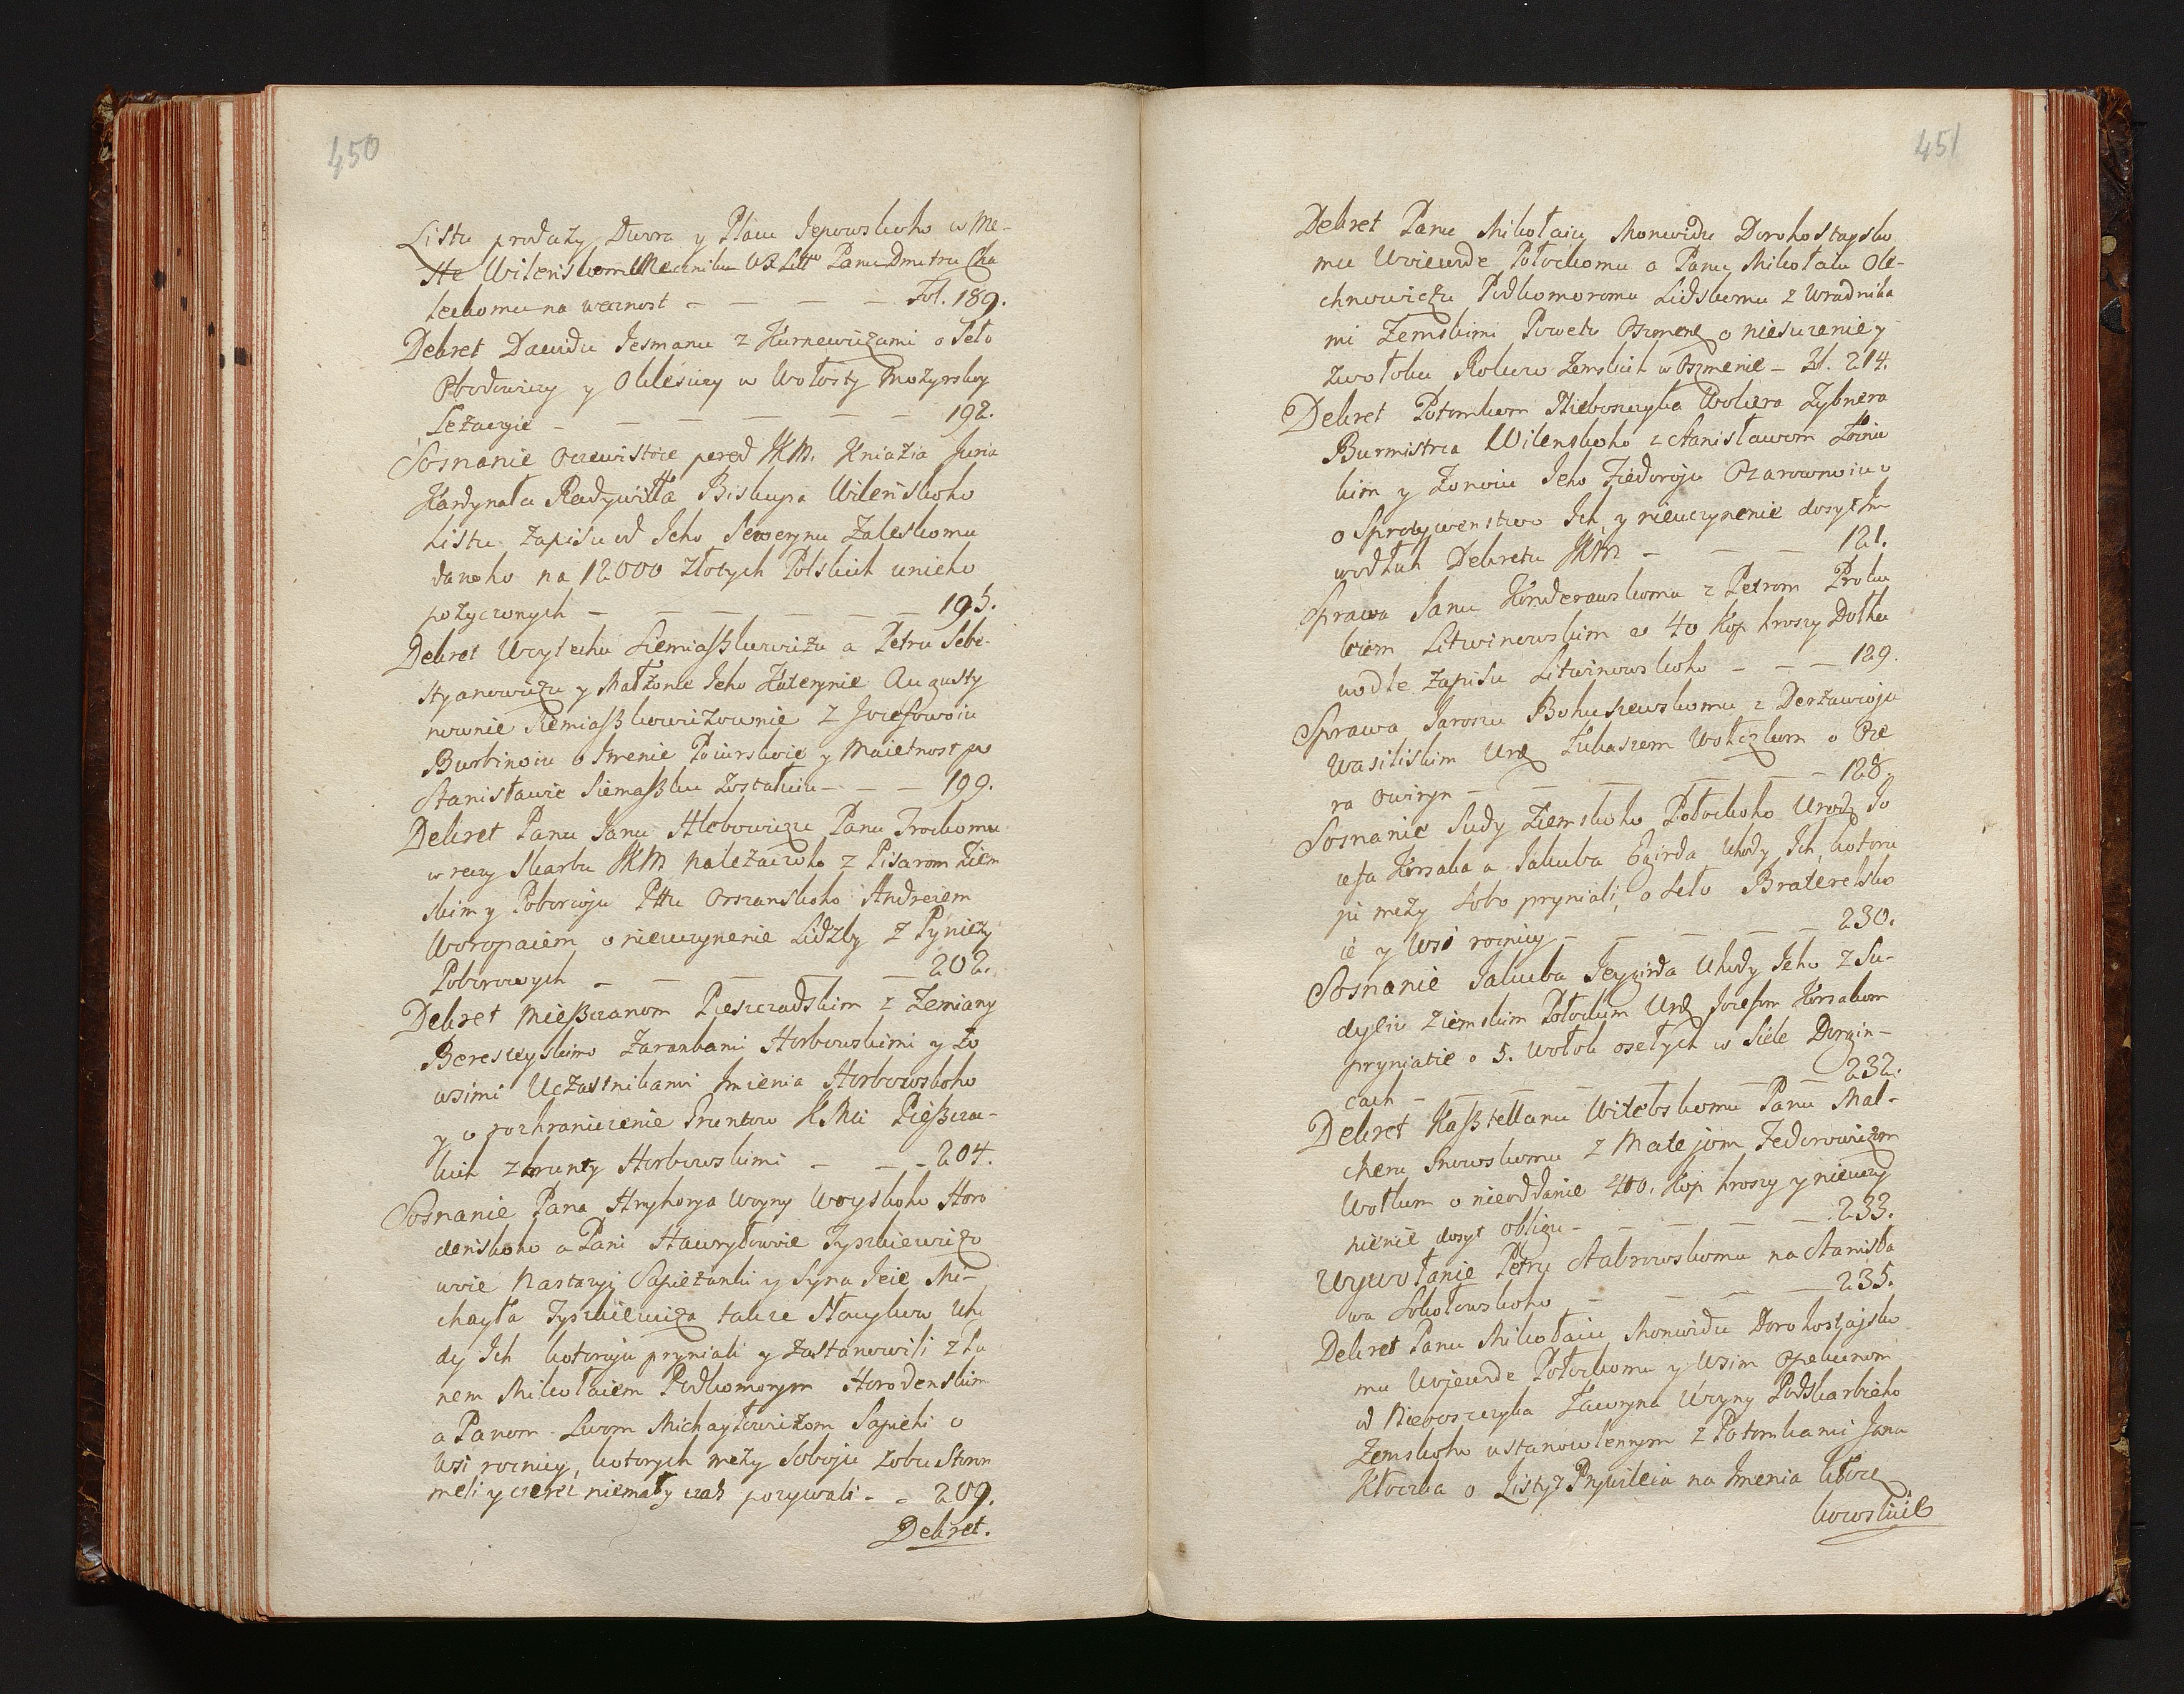 450
Listu prodaży Dwora y Placu Jepowskoho w Me-
ste Wilenskom Meczniku WX Litt Panu Dmitru Cha
leckomu na wecznost - - - - Fol. 189.
Dekret Dawidu Jesmanu z Kurnewiczami o Seło
Obodowiczy y Oklesiczy w Wołosty Mozyrskoy
Leżaczyie - - - - - 192.
Sosnanie Oczewistoie pered JKM. Kniazia Juria
Kardynała Radziwiłła Biskupa Wilenskoho
Listu Zapisu od Jeho Sewerynu Zaleskomu
danoho na 12000 Złotych Polskich unieho
pożyczonych - - - - - 195.
Dekret Woytechu Siemiaßkowiczu a Petru Seba-
styanowiczu y Małżonce Jeho Katerynie Augusty
nownie Siemiaßkowiczownie z Jozefowoiu
Burbinoiu o Imenie Poiurskoie y Maietnost po
Stanisławie Siemaßku Zostałuiu - - - 199.
Dekret Panu Janu Hlebowiczu Panu Trockomu
w reczy Skarbu JKM należaczoho z Pisarom Ziem
skim y Poborcoju Pttu Orszanskoho Andreiem
Woropaiem o nieuczynenie Lidzby z Pyniezy
Poborowych - - - - - 202.
Dekret Mießczanom Pieszczadskim z Zemiany
Beresteyskimi Zarankami Horbowskimi y Zo
wsimi Uczastnikami Imienia Horbowskoho
y o rozhraniczenie Gruntow K. Mci Pießcza-
kich z hrunty Horbowskimi - - - 204.
Sosnanie Pana Hryhorya Woyny Woyskoho Horo
denskoho a Pani Hawryłowoie Tyszkiewiczo
woie Nastazyi Sapieżanki y Syna Jeie Mi-
chayła Tyszkiewicza takze Słauykow Uho
dy Ich kotoruju pryniali y Zastanowili z Pa
nem Mikołaiem Podkomorym Horodenskim
a Panom Lwom Michayłowiczom Sapieho o
Wsi roznicy, kotorych meży Soboju z obu Storon
meli y czerez niemały czas pozywali - - 209.
Dekret.
451
Dekret Panu Mikołaiu Monwidu Dorohostaysko
mu Woiewode Połockomu a Panu Mikołaiu Ole-
chnowiczu Podkomoromu Lidskomu z Wradnika
mi Zemskimi Powetu Oszmens. o niesuzenie y
Zwołoku Rokow Zemskich w Oszmenie - Fol. 214.
Dekret Potomkom Nieboszczyka Wolera Zybnera
Burmistrza Wilenskoho z Stanisławom Łoznic
kim y Żonoiu Jeho Fiedoroju Ozarownoiu o
o Sprotywenstwo Ich, y nieuczynenie dosyt Im
wodłuh Dekretu JKM - - - 121.
Sprawa Janu Konderawskomu z Petrom Proku
kiem Litwinowskim o 40 Kop hroszy Dołhu
wodle Zapisu Litwinowskoho - - - 129.
Sprawa Jaroszu Bohuszewskomu z Derżawcoju
Wasiliskim Urz Łukaszem Wołczkom o Oze
ra Owiryn - - - - - 128.
Sosnanie Sudy Ziemskoho Połockoho Urodz. Jo
zefa Korsaka a Jakuba Egirda Uhody Ich, kotoru
iu meży Sobo pryniali, o Seło Braterelsko
ie y Wsi roznicy - - - - - 230.
Sosnanie Jakuba Jeygirda Uhody Jeho z Su-
dyeiu Ziemskim Połockim Urz. Jozefom Korsakom
pryniatie o 5. Wołok osełych w Siele Dorzin-
cach - - - - - 232.
Dekret Kaßtellanu Witebskomu Panu Mal-
cheru Snowskomu z Matejom Fedorowiczom
Wołkom o nieoddanie 400. Kop hroszy y nieuczy
nienie dosyt obligu - - - - - 233.
Wywołanie Petru Stabrowskomu na Stanisła
wa Sokołowskoho - - - - 235.
Dekret Panu Mikołaiu Monwidu Dorohostajsko
mu Wojewode Połockomu y Wsim Opekunom
od Nieboszczyka Ławryna Woyny Podskarbieho
Zemskoho ustanowlennym z Potomkami Jana
Kłoczka o Listy y Prywileia na Imenia Kłocz
kowskiie